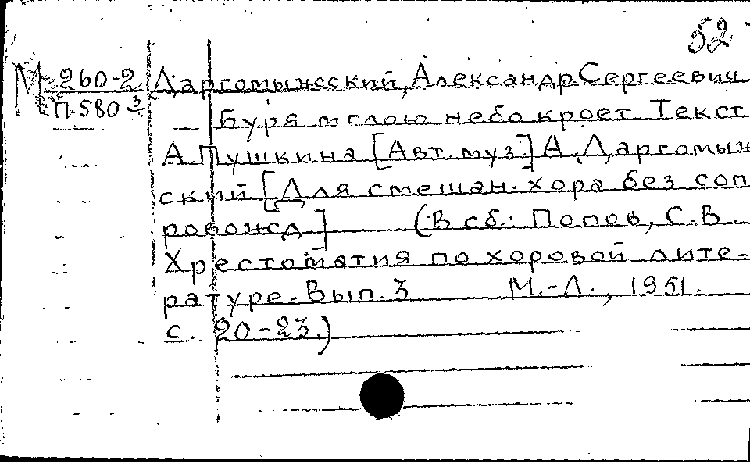 52
М 260-2 Даргомыжский, Александр Сергеевич
П 580 3
Буря мглою небо кроет. Текст
А. Пушкина [Авт. муз.] А. Даргомыж
ский [Для смешан. хора без соп
ровожд.] (В сб.: Попов, С. В.
Хрестоматия по хоровой лите-
ратуре. Вып. 3 М.-Л., 1951.
с. 20-23.)